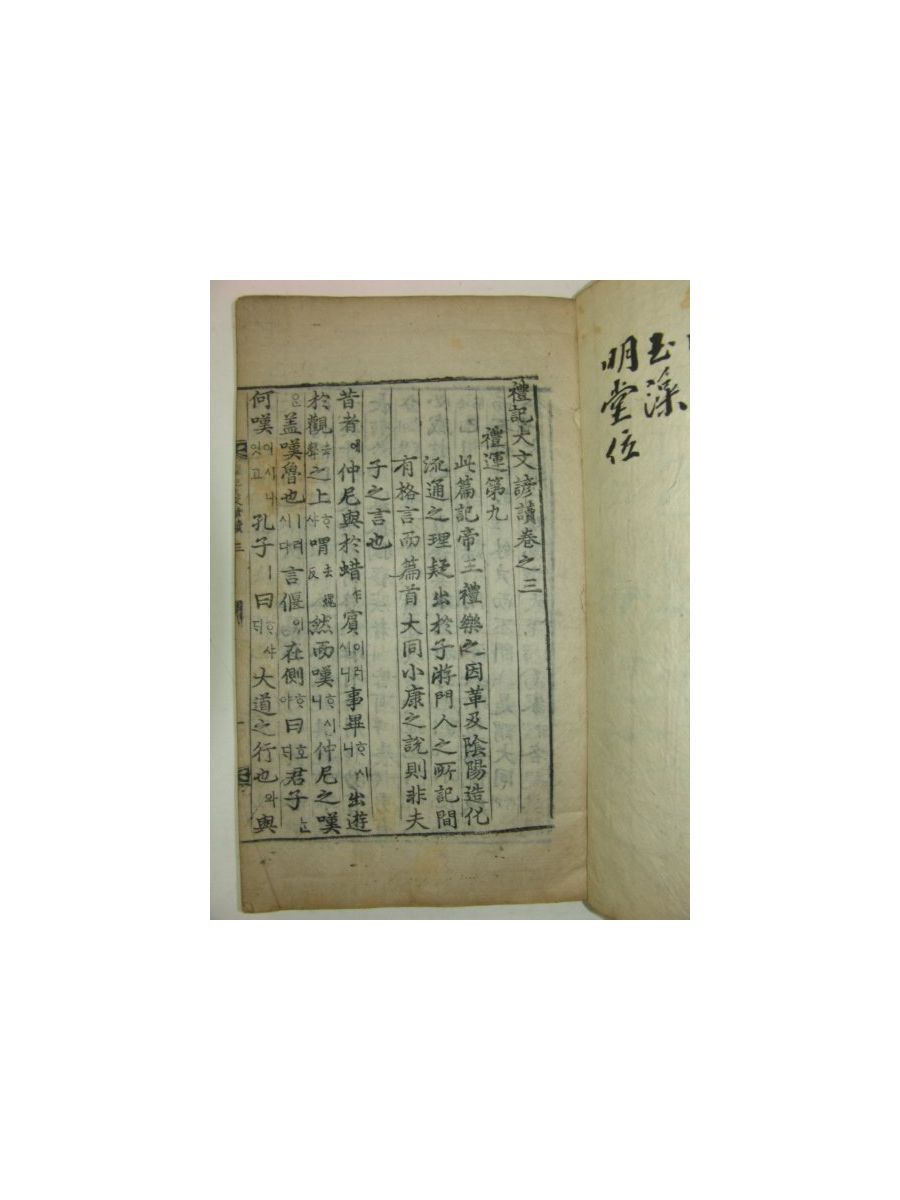 玉藻
明堂位
禮記大文諺讀卷之三
禮運第九
此篇記帝王禮樂之因革及陰陽造化
流通之理疑出於子游門人之所記間
有格言而篇首大同小康之說則非夫
子之言也
昔者에仲尼與於蜡賓이러시니事畢하시니出遊
於觀去聲之上하샤喟去然而嘆하시니仲尼之嘆
은盖嘆魯也ㅣ러시다言偃이在側하야曰호되君子는
何嘆이시니잇고孔子ㅣ曰하샤되大道之行也와與